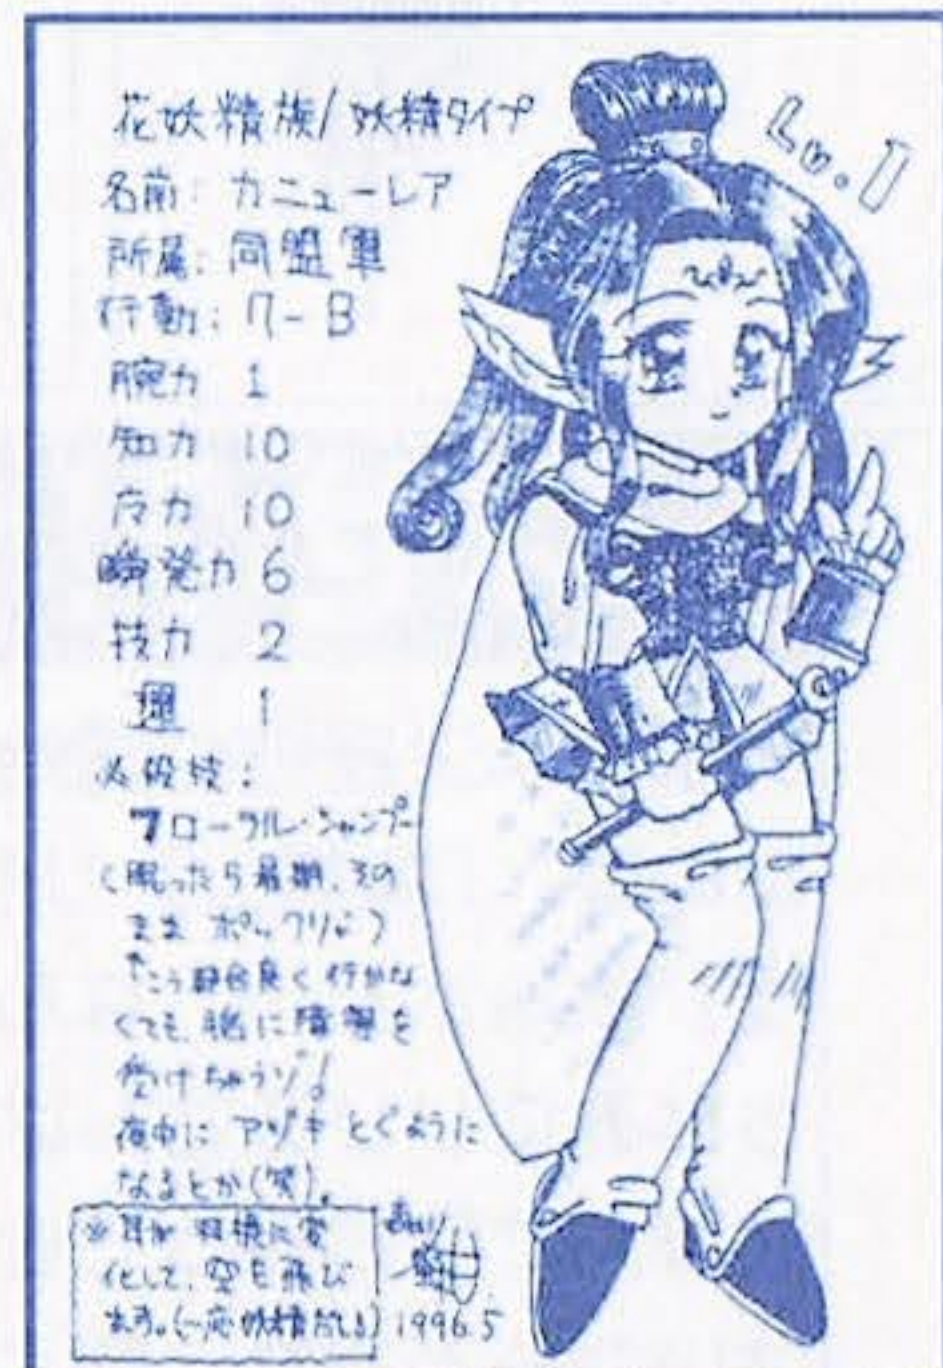 花妖精族/妖精タイプ
Lv.1
名前: カニューレア
所属: 同盟軍
行動: 7-B
腕力 1
知力 10
体力 10
瞬発力 6
技力 2
運 1
必殺技:
フローラル・シャンプー
(眠ったら最期、その
まま ポックリ
↑こう都合良く行かな
くても、脳に障害を
受けちゃうゾ!
夜中に アヅキ とぐように
なるとか(笑)。
※耳が 羽根に変
化して、空を飛び
ます。(一応妖精だしね)
1996.5